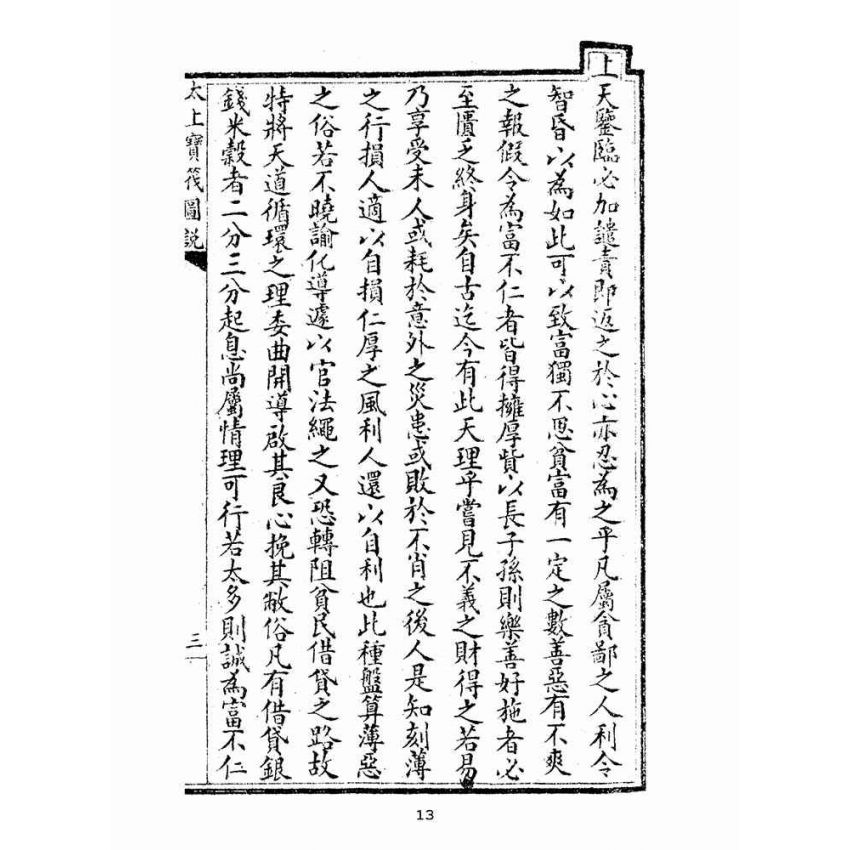 上
天鑒臨必加譴責即返之於心亦忍為之乎凡屬貪鄙之人利令
智昏以為如此可以致富獨不思貧富有一定之數善惡有不爽
之報假令為富不仁者皆得擁厚貲以長子孫則樂善好施者必
至匱乏終身矣自古迄今有此天理乎嘗見不義之財得之若易
乃享受未人或耗於意外之災患或敗於不肖之後人是知刻薄
之行損人適以自損仁厚之風利人還以自利也此種盤算薄惡
之俗若不曉諭化導遽以官法繩之又恐轉阻貧民借貸之路故
特將天道循環之理委曲開導啟其良心挽其敝俗凡有借貸銀
錢米穀者二分三分起息尚屬情理可行若太多則誠為富不仁
太上寶筏圖說
三
13